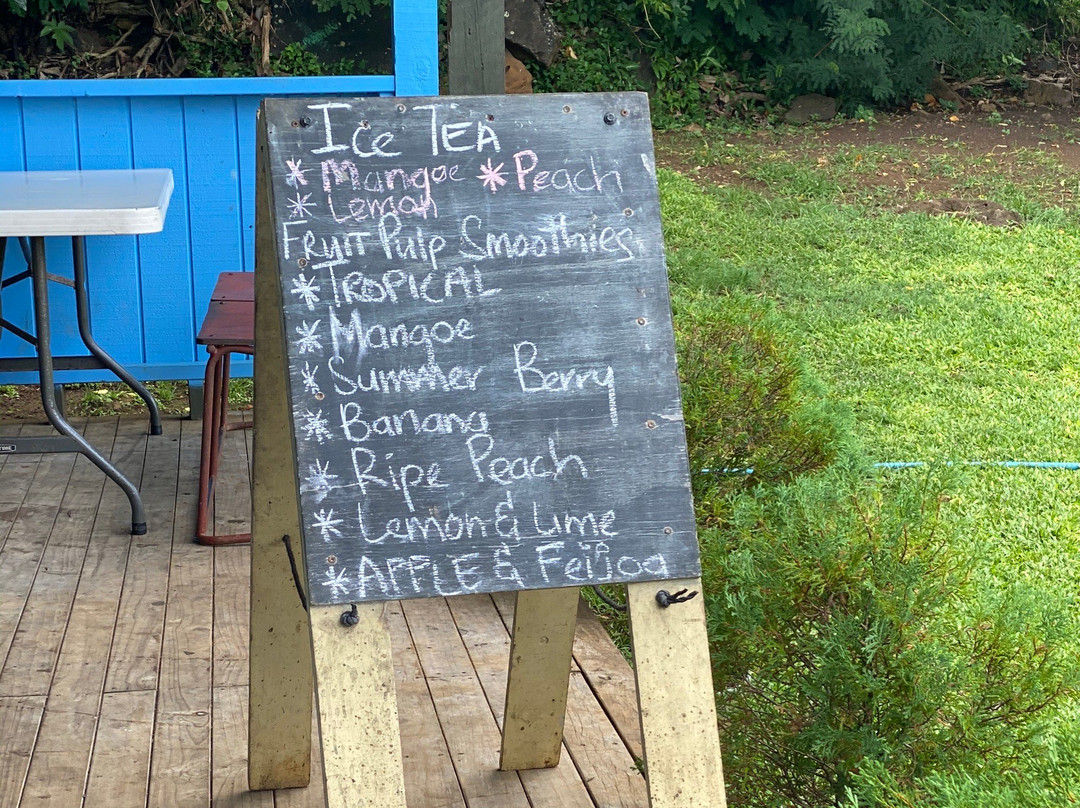 Ice TEA
* Mangoe * Peach
* Lemon
FRUIT Pulp Smoothies
* TROPICAL
* Mangoe
* Summer Berry
* Banana
* Ripe Peach
* Lemon & Lime
* APPLE & Feijoa